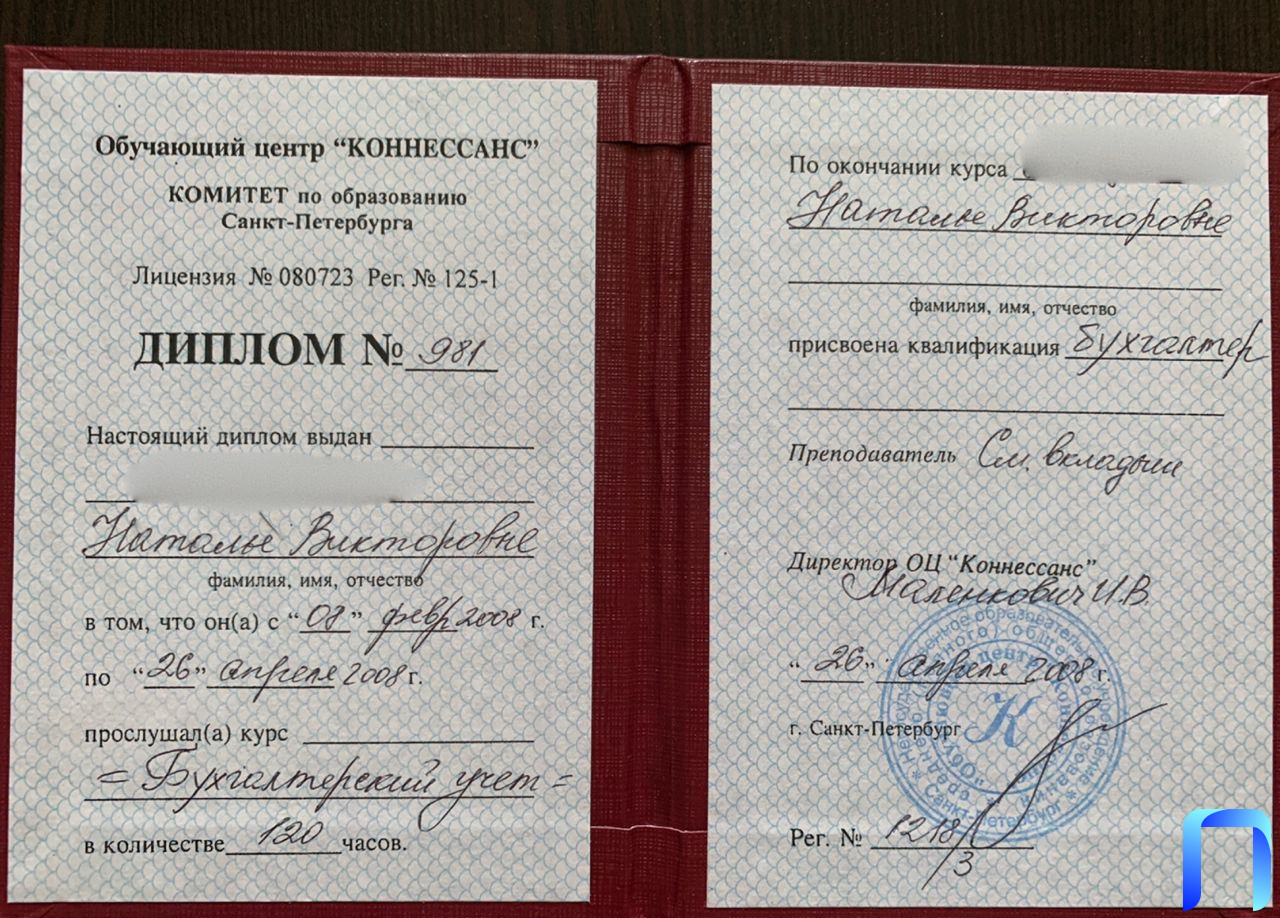 Обучающий центр “КОННЕССАНС”
КОМИТЕТ по образованию
Санкт-Петербурга
Лицензия № 080723 Рег. № 125-1
ДИПЛОМ № 981
Настоящий диплом выдан
Наталье Викторовне
фамилия, имя, отчество
в том, что он(а) с “08” февр 2008 г.
по “26” апреля 2008 г.
прослушал(а) курс
= Бухгалтерский учет =
в количестве 120 часов.
По окончании курса
Наталье Викторовне
фамилия, имя, отчество
присвоена квалификация бухгалтер
Преподаватель См. вкладыш
Директор ОЦ “Коннессанс”
Маленкович И.В.
“26” апреля 2008 г.
г. Санкт-Петербург
К
Санкт-Петербург
Рег. № 1218/3